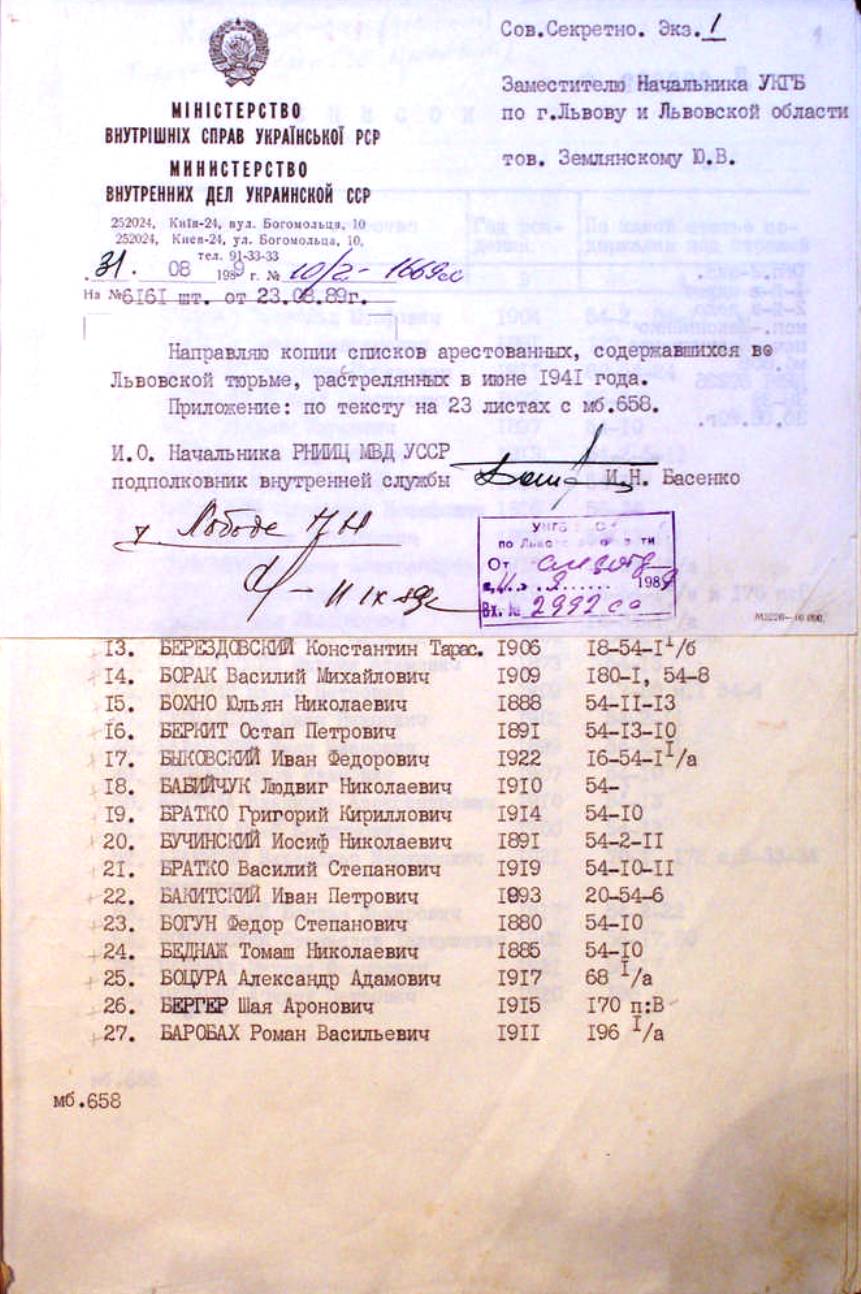 Сов.Секретно. Экз.1
Заместителю Начальника УКГБ
по г.Львову и Львовской области
тов. Землянскому Ю.В.
МІНІСТЕРСТВО
ВНУТРІШНІХ СПРАВ УКРАЇНСЬКОЇ РСР
МИНИСТЕРСТВО
ВНУТРЕННИХ ДЕЛ УКРАИНСКОЙ ССР
252024, Київ-24, вул. Богомольця, 10
252024, Киев-24, ул. Богомольца, 10,
тел. 91-33-33
31. 08 1989 г. № 10/2-1669сс
На №6161 шт. от 23.08.89г.
Направляю копии списков арестованных, содержавшихся во
Львовской тюрьме, растрелянных в июне 1941 года.
Приложение: по тексту на 23 листах с мб.658.
И.О. Начальника РНИИЦ МВД УССР
подполковник внутренней службы И.Н. Басенко
Лободе
по
От
198
Вх. № 2992
13. БЕРЕЗДОВСКИЙ Константин Тарас. 1906 18-54-1 1/б
14. БОРАК Василий Михайлович 1909 180-1, 54-8
15. БОХНО Юльян Николаевич 1888 54-11-13
16. БЕРКИТ Остап Петрович 1891 54-13-10
17. БЫКОВСКИЙ Иван Федорович 1922 16-54-1 1/а
18. БАБИЙЧУК Людвиг Николаевич 1910 54-
19. БРАТКО Григорий Кириллович 1914 54-10
20. БУЧИНСКИЙ Иосиф Николаевич 1891 54-2-11
21. БРАТКО Василий Степанович 1919 54-10-11
22. БАКИТСКИЙ Иван Петрович 1893 20-54-6
23. БОГУН Федор Степанович 1880 54-10
24. БЕДНАЖ Томаш Николаевич 1885 54-10
25. БОЦУРА Александр Адамович 1917 68 1/а
26. БЕРГЕР Шая Аронович 1915 170 п:В
27. БАРОБАХ Роман Васильевич 1911 196 1/а
мб.658